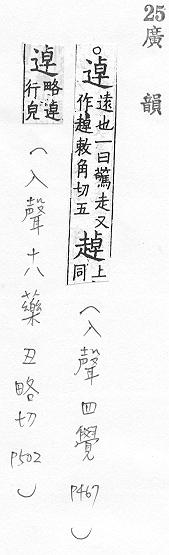 25廣韻
○逴遠也一曰驚走又
作趠敕角切五趠上
同
(入聲四覺 P467)
逴略逴
行皃
(入聲十八藥 丑略切 P502)